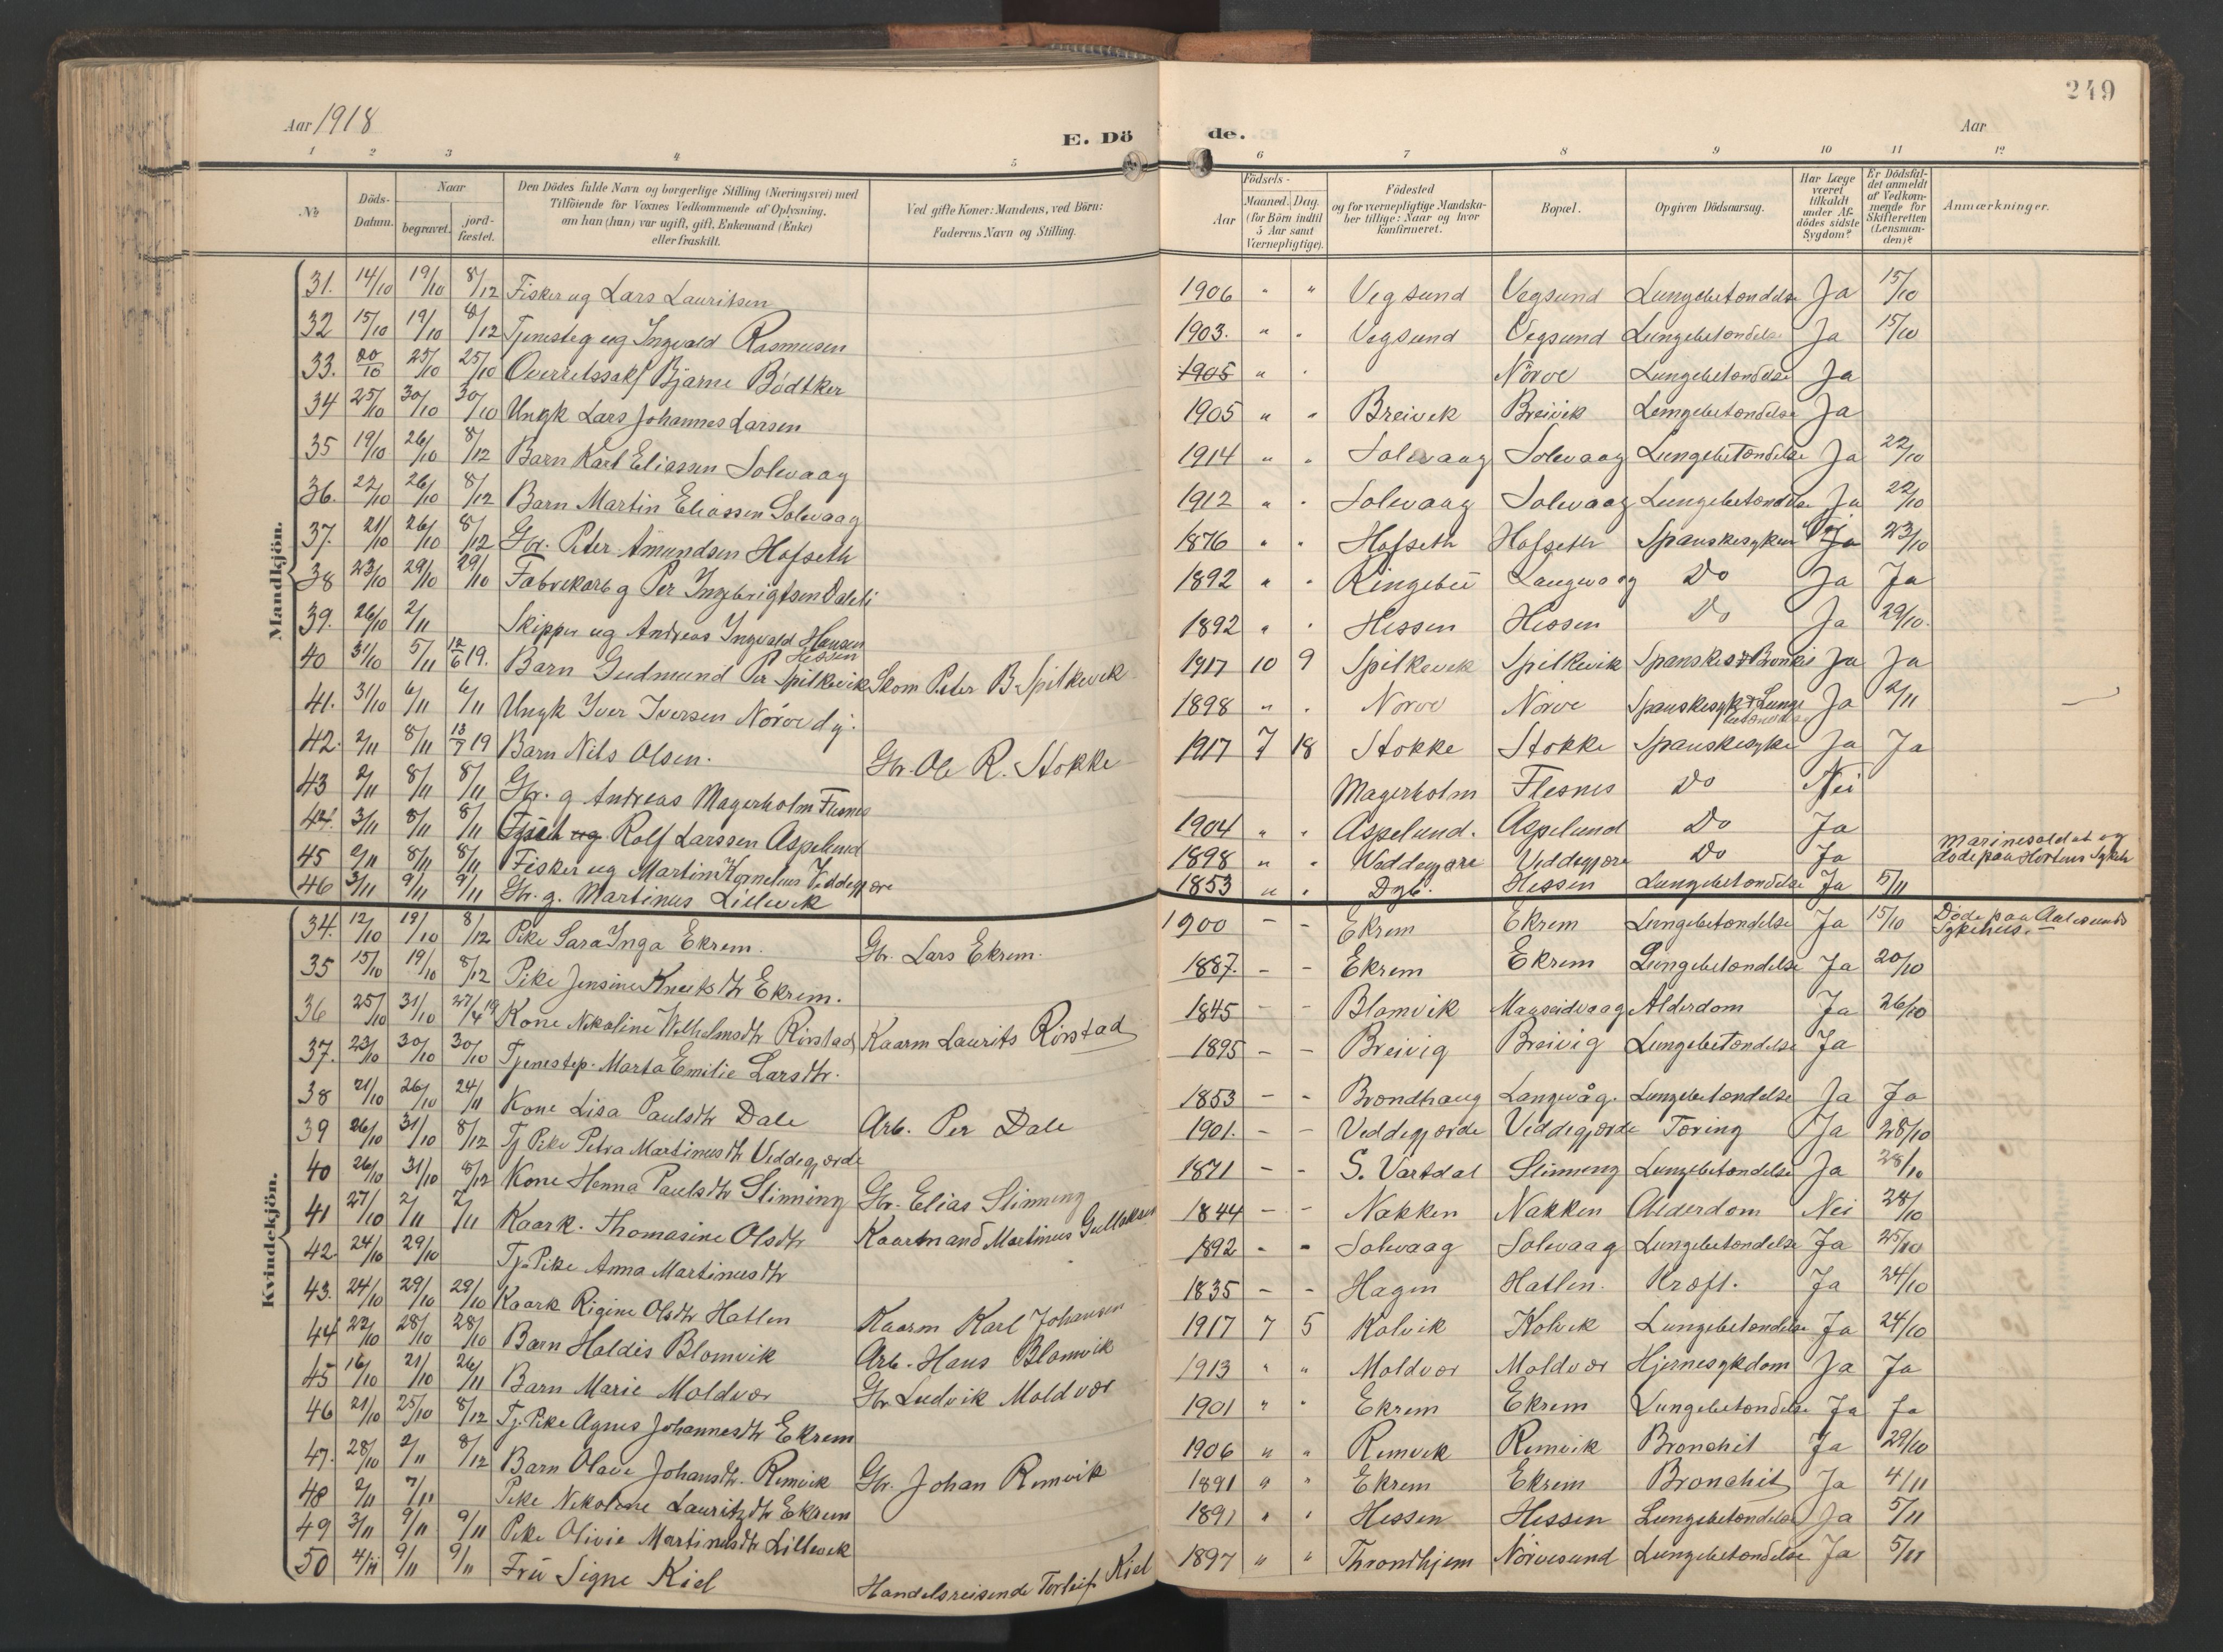 249
Aar 1918
E. Dö de.
Aar
1 2 3 4 5 6 7 8 9 10 11 12
№
Döds-Datum.
Naar
begravet.
jord-fæstet.
Den Dödes fulde Navn og borgerlige Stilling (Næringsvei) med
Tilföiende for Voxnes Vedkommende af Oplysning,
om han (hun) var ugift, gift, Enkemand (Enke)
eller fraskilt.
Ved gifte Koner: Mandens, ved Börn:
Faderens Navn og Stilling.
Födsels-
Aar
Maaned. Dag.
(for Börn indtil
5 Aar samt
Værnepligtige).
Födested
og for værnepligtige Mandska-
ber tillige: Naar og hvor
konfirmeret.
Bopæl.
Opgiven Dödsaarsag.
Har Læge
været
tilkaldt
under Af-
dödes sidste
Sygdom?
Er Dödsfal-
det anmeldt
af Vedkom-
mende for
Skifteretten
(Lensman-
den)?
Anmærkninger.
Mandkjön.
31. 14/10 19/10 8/12 Fisker ug Lars Lauritsen 1906 " " Vegsund Vegsund Lungebetondelse Ja 15/10
32 15/10 19/10 8/12 Tjenesteg ug Ingvald Rasmusen 1903. " " Vegsund Vegsund Lungebetondelse Ja 15/10
33. 20/10 25/10 25/10 Overretssakf Bjarne Bödtker 1905 " " Nörve Lungebetondelse Ja
34 25/10 30/10 30/10 Ungk Lars Johannes Larsen 1905 " " Breivik Breivik Lungebetondelse Ja
35 19/10 26/10 8/12 Barn Karl Eliassen Solevaag 1914 " " Solevaag Solevaag Lungebetondelse Ja 22/10
36. 22/10 26/10 8/12 Barn Martin Eliassen Solevaag 1912 " " Solevaag Solevaag Lungebetondelse Ja 22/10
37. 21/10 26/10 8/12 Gbr. Peter Amundsen Hofseth 1876 " " Hofseth Hofseth Spanskesyken Ja 23/10
38 23/10 29/10 29/10 Fabrekarb g Per Ingebrigtsen Daleli 1892 " " Ringebu Langvaag Do Ja Ja
39. 26/10 2/11 Skipper ug Andreas Ingvald Hansen Hessen 1892 " " Hessen Hessen Do Ja 29/10.
40 31/10 5/11 12/6 19. Barn Gudmund Per Spilkevik Skom Peter B. Spilkevik 1917 10 9 Spilkevik Spilkevik Spanskes & Bronkit Ja Ja
41. 31/10 6/11 6/11 Ungk Iver Iversen Nörve d.y. 1898 " " Nörve Nörve Spanskesyk & Lungebetondelse Ja 2/11 —
42. 2/11 8/11 13/7 19 Barn Nils Olsen. Gbr. Ole R. Stokke 1917 7 18 Stokke Stokke Spanskesyke Ja Ja
43 2/11 8/11 8/11 Gbr. g Andreas Magerholm Flesnes Magerholm Flesnes Do Nei
44. 3/11 8/11 8/11 ug. Rolf Larssen Aspelund 1904 " " Aspelund. Aspelund Do Ja
45 2/11 8/11 8/11 Fisker ug Martin Kornelius Veddegjerde 1898 " " Veddegjære Veddegjære Do Ja Marinesoldat og döde paa Hortens Sykeh
46 3/11 9/11 9/11 Gbr. g. Martinus Lillevik 1853 " " Dgb. Hessen Lungebetondelse Ja 5/11
Kvindekjön.
34. 12/10 19/10 8/12 Pike Sara Inga Ekrem. Gbr. Lars Ekrem. 1900 – – Ekrem Ekrem Lungebetondelse Ja 15/10 Döde paa Aalesunds Sykehus.
35 15/10 19/10 8/12 Pike Jensine Knutsdtr Ekrem. 1887. – – Ekrem Ekrem Lungebetondelse Ja 20/10
36 25/10 31/10 27/4 19 Kone Nikoline Wilhelmsdtr Rörstad Kaarm Laurits Rörstad 1845 – – Blomvik Mauseidvaag Alderdom Ja 26/10
37. 23/10 30/10 30/10 Tjenestep. Marta Emilie Larsdtr. 1895 – – Breivig Breivig Lungebetondelse Ja
38 21/10 26/10 24/11 Kone Lisa Paulsdtr Dale Arb. Per Dale 1853 – – Brondhaug Langevåg. Lungebetondelse Ja Ja
39 26/10 31/10 8/12 Tj Pike Petra Martinusdtr Veddegjorde 1901. – – Veddegjorde Veddegjorde Toring Ja 28/10
40 26/10 31/10 8/12 Kone Hanna Paulsdtr Slinning Gbr. Elias Slinning 1871 – – S. Vartdal Slinning Lungebetondelse Ja 28/10
41 27/10 2/11 2/11 Kaark. Thomasine Olsdtr Kaarmand Martinus Gullaksen 1844 – – Nakken Nakken Alderdom Nei 28/10
42. 24/10 29/10 Tj. Pike Anna Martinusdtr 1892 – – Solevaag Solevaag Lungebetondelse Ja 25/10
43. 24/10 29/10 29/10 Kaark Rigine Olsdtr Hatlen Kaarm Karl Johansen 1835 – – Hagen Hatlen. Kroft. Ja 24/10
44 22/10 28/10 28/10 Barn Haldis Blomvik Arb. Hans Blomvik 1917 7 5 Kolvik Kolvik Lungebetondelse Ja 24/10
45 16/10 21/10 26/11 Barn Marie Moldvor Gbr Ludvik Moldvor 1913 " " Moldvor Moldvor Hjernesykdom Ja Ja
46 21/10 25/10 8/12 Tj. Pike Agnes Johannesdtr Ekrem 1901 " " Ekrem Ekrem Lungebetondelse Ja Ja
47. 28/10 2/11 8/12 Barn Olave Johansdtr. Remvik Gbr. Johan Remvik 1906 " " Remvik Remvik Bronchit Ja 29/10
48 2/11 7/11 Pike Nikoline Lauritzdtr Ekrem 1891 " " Ekrem Ekrem Bronchit Ja 4/11
49 3/11 9/11 9/11 Pike Olivie Martinusdtr Lillevik 1891 " " Hessen Hessen Lungebetondelse Ja 5/11
50 4/11 9/11 9/11 Fru Signe Kiel Handelsreisende Torleif Kiel 1897 " " Throndhjem Nörvesund Lungebetondelse Ja 5/11